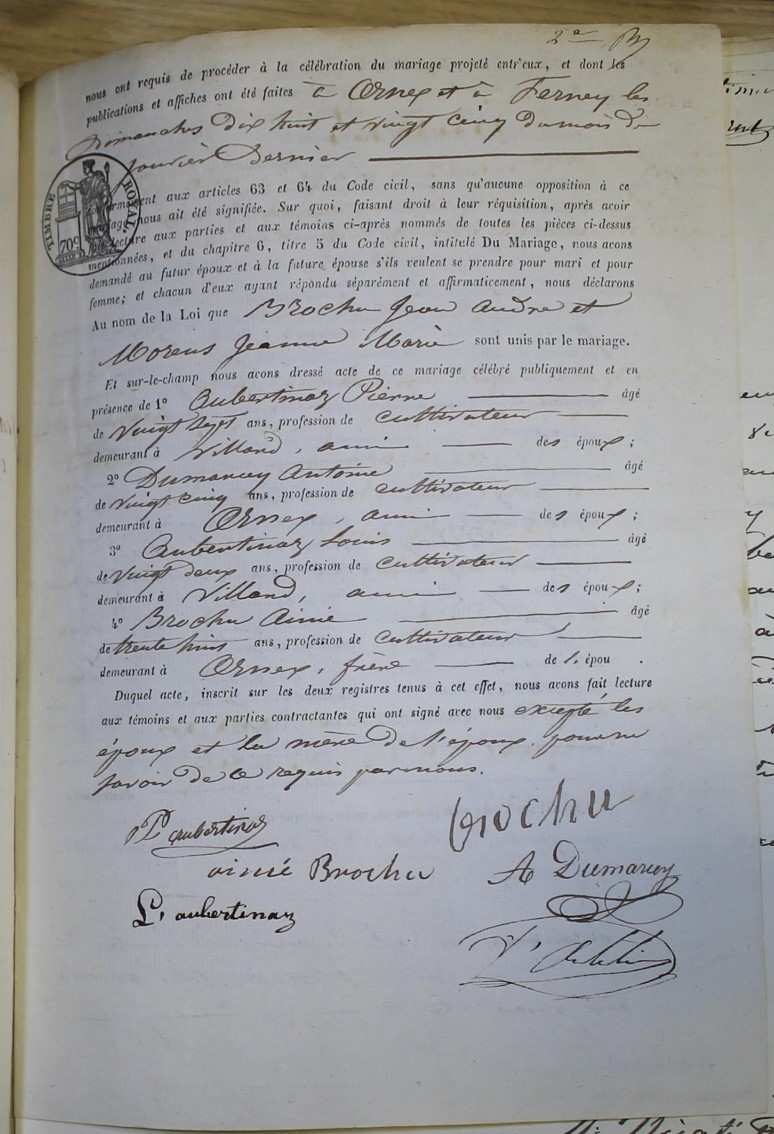 2e
nous ont requis de procéder à la célébration du mariage projeté entr'eux, et dont les
publications et affiches ont été faites à Ornex et à Ferney les
Dimanches Dix huit et vingt cinq du mois de
Janvier Dernier
aux articles 63 et 64 du Code civil, sans qu'aucune opposition à ce
nous ait été signifiée. Sur quoi, faisant droit à leur réquisition, après avoir
lecture aux parties et aux témoins ci-après nommés de toutes les pièces ci-dessus
mentionnées, et du chapitre 6, titre 5 du Code civil, intitulé Du Mariage, nous avons
demandé au futur époux et à la future épouse s'ils veulent se prendre pour mari et pour
femme; et chacun d'eux ayant répondu séparément et affirmativement, nous déclarons
Au nom de la Loi que Brochu Jean André et
Morens Jeanne Marie sont unis par le mariage.
TIMBRE ROYAL
70c
Et sur-le-champ nous avons dressé acte de ce mariage célébré publiquement et en
présence de 1º Aubertinaz Pierre âgé
de vingt sept ans, profession de cultivateur
demeurant à Villard, ami des époux;
2º Dumarcey Antoine âgé
de vingt cinq ans, profession de cultivateur
demeurant à Ornex, ami des époux;
3º Aubertinaz Louis âgé
de vingt deux ans, profession de cultivateur
demeurant à Villard, ami des époux;
4º Brochu Aimé âgé
de trente huit ans, profession de cultivateur
demeurant à Ornex, frère de l'épou.
Duquel acte, inscrit sur les deux registres tenus à cet effet, nous avons fait lecture
aux témoins et aux parties contractantes qui ont signé avec nous excepté les
époux et la mère de l'époux, pour ne
savoir de ce requis par nous.
P aubertinaz
brochu
aimé Brochu
A Dumarcey
L. aubertinaz